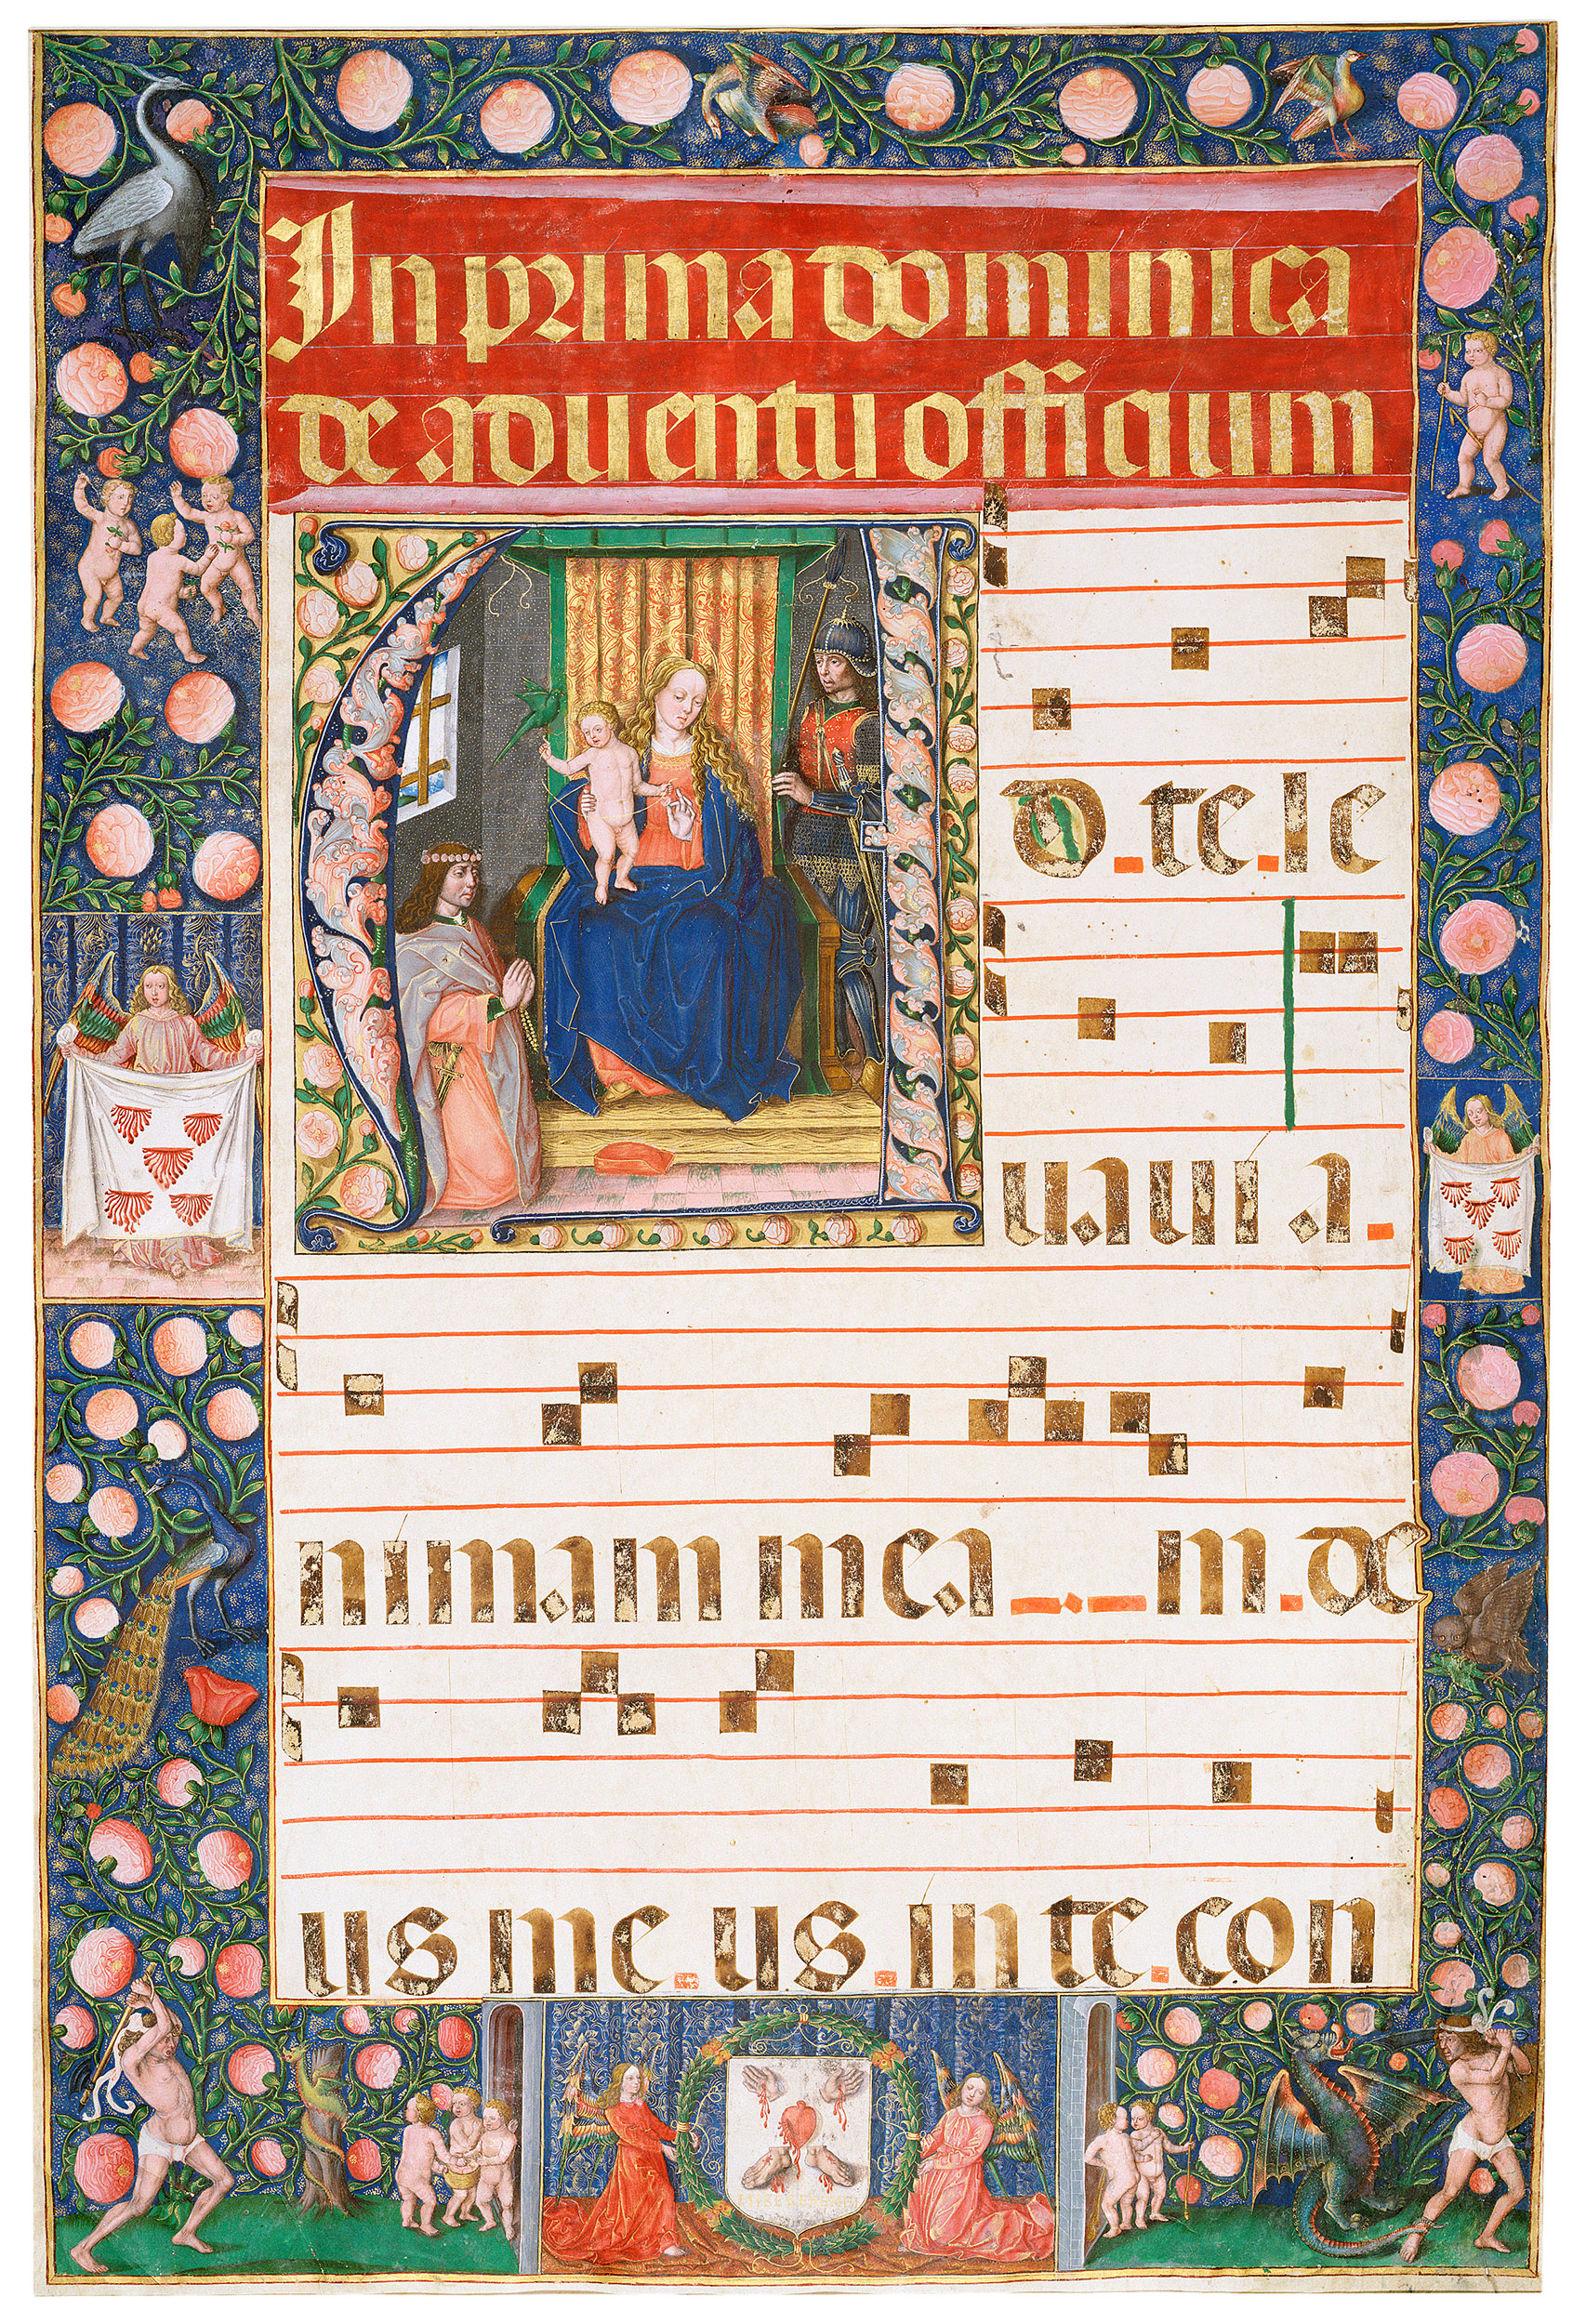 In prima dominica
de adventu officium
AD te le
uaui a
nimam mea m de
us me us in te con
MISEREMINI